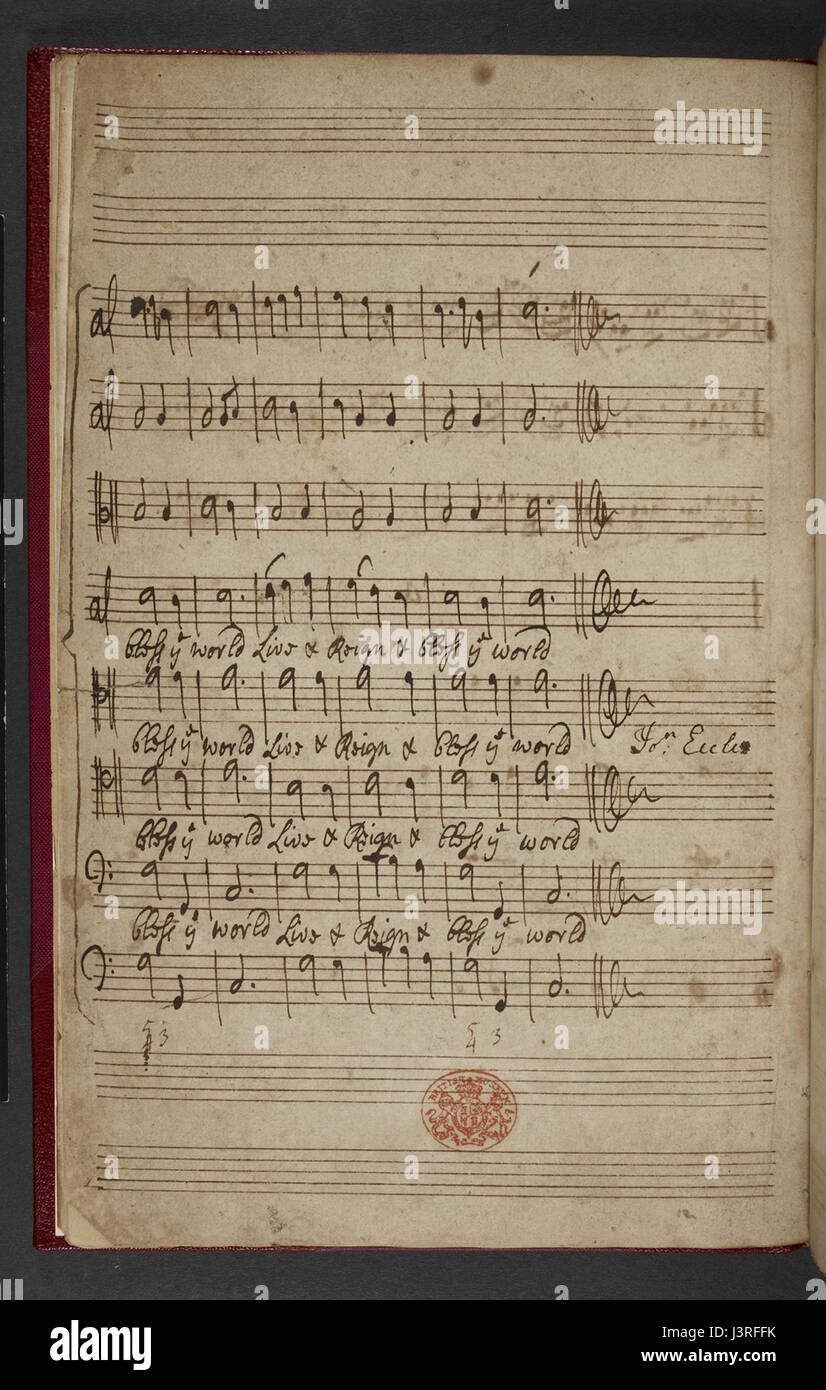 bless yͤ world Live & Reign & bless yͤ world
bless yͤ world Live & Reign & bless yͤ world
Joⁿ: Eccles
bless yͤ world Live & Reign & bless yͤ world
bless yͤ world Live & Reign & bless yͤ world
5 3
4
5 3
4
12
alamy stock photo
alamy
Image ID: J3RFFK
www.alamy.com